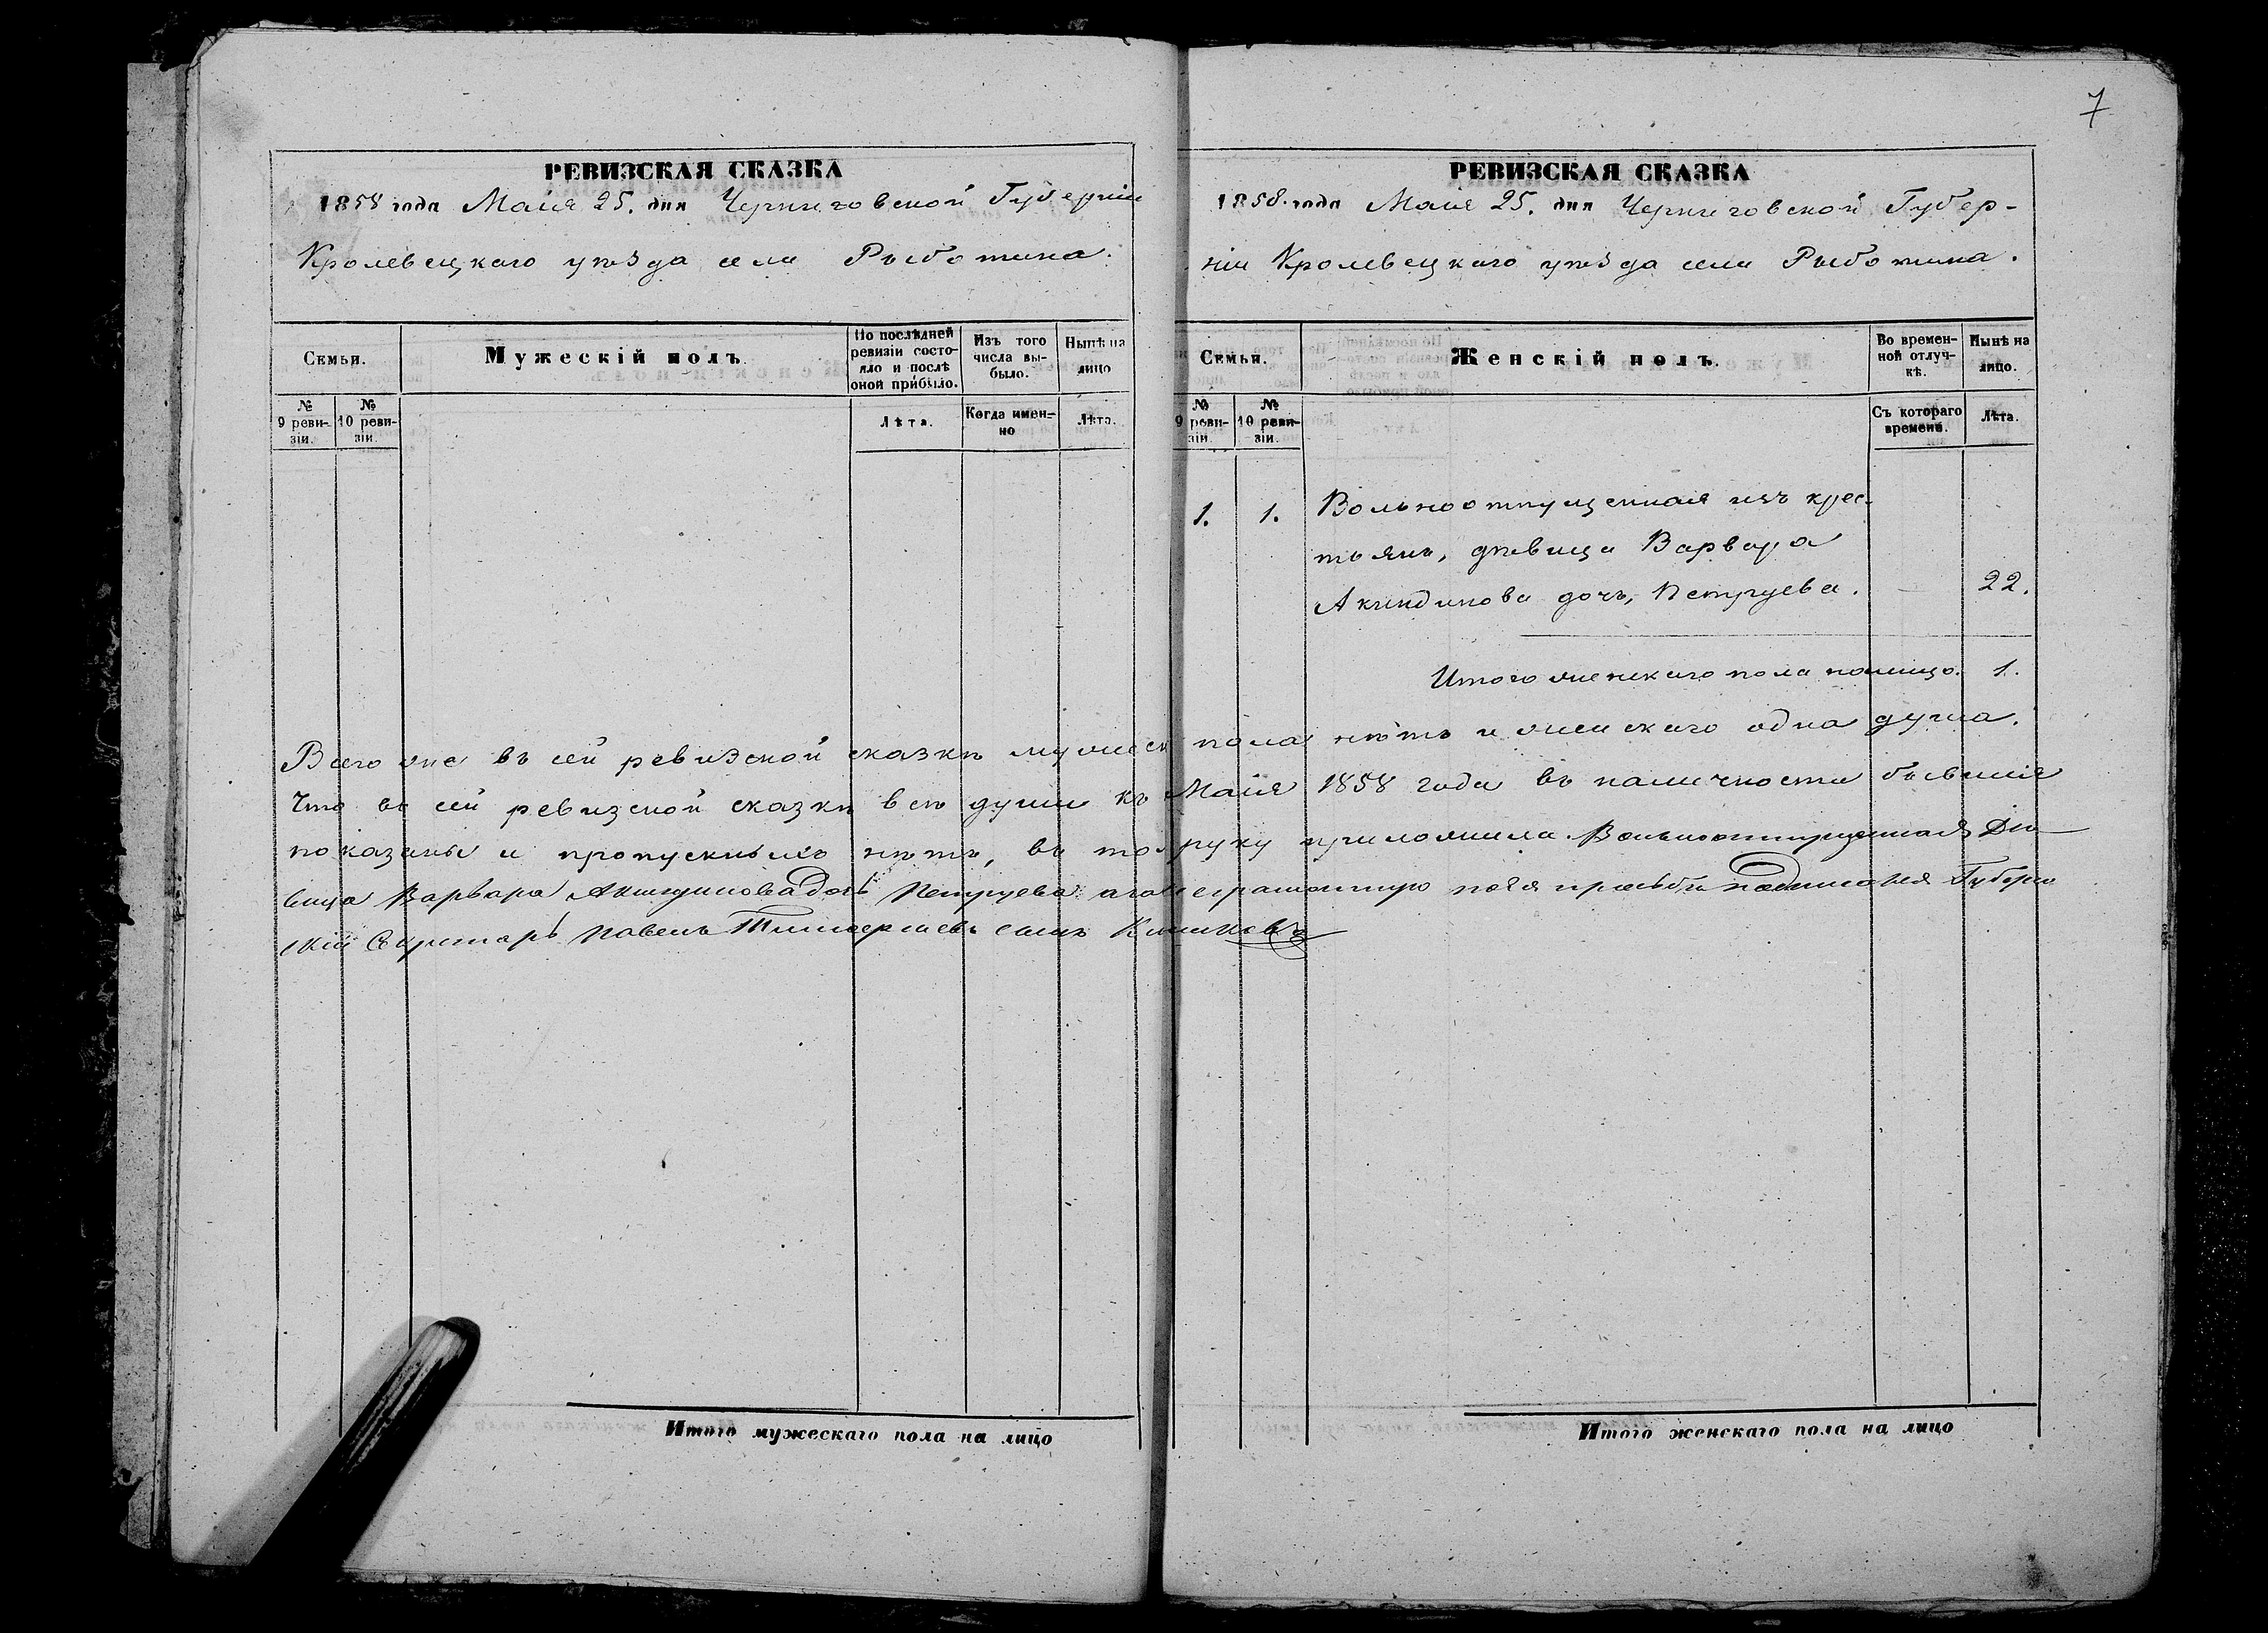 7
РЕВИЗСКАЯ СКАЗКА
1858 года Маія 25. дня Черниговской Губерніи
Кролевецкаго уѣзда села Рыботина.
Семьи.
Мужескій полъ.
По послѣдней ревизіи состояло и послѣ оной прибыло.
Изъ того числа выбыло.
Нынѣ на лицо
№ 9 ревизіи.
№ 10 ревизіи.
Лѣта.
Когда именно
Лѣта.
РЕВИЗСКАЯ СКАЗКА
1858 года Маія 25. дня Черниговской Губер-
ніи Кролевецкаго уѣзда села Рыботина.
Семьи.
Женскій полъ.
Во временной отлучкѣ.
Нынѣ на лицо.
№ 9 ревизіи.
№ 10 ревизіи.
Съ котораго времени.
Лѣта.
1. 1. Вольноотпущенная изъ крес-
тьянъ, дѣвица Варвара
Акиндинова дочь, Петруева. 22.
Итого женскаго пола налицо. 1.
Всего же въ сей ревизской сказкѣ мужеск пола нѣтъ и женскаго одна душа.
Что въ сей ревизской сказкѣ всѣ души къ Маія 1858 года въ наличности бывшія
показаны и пропускныхъ нѣтъ, въ том руку приложила. Вольноотпущенная Дѣ-
вица Варвара Акиндинова Дочь Петруева а по просьбѣ подписался Губерн
скій Секретарь Павелъ сынъ
Итого мужескаго пола на лицо
Итого женскаго пола на лицо